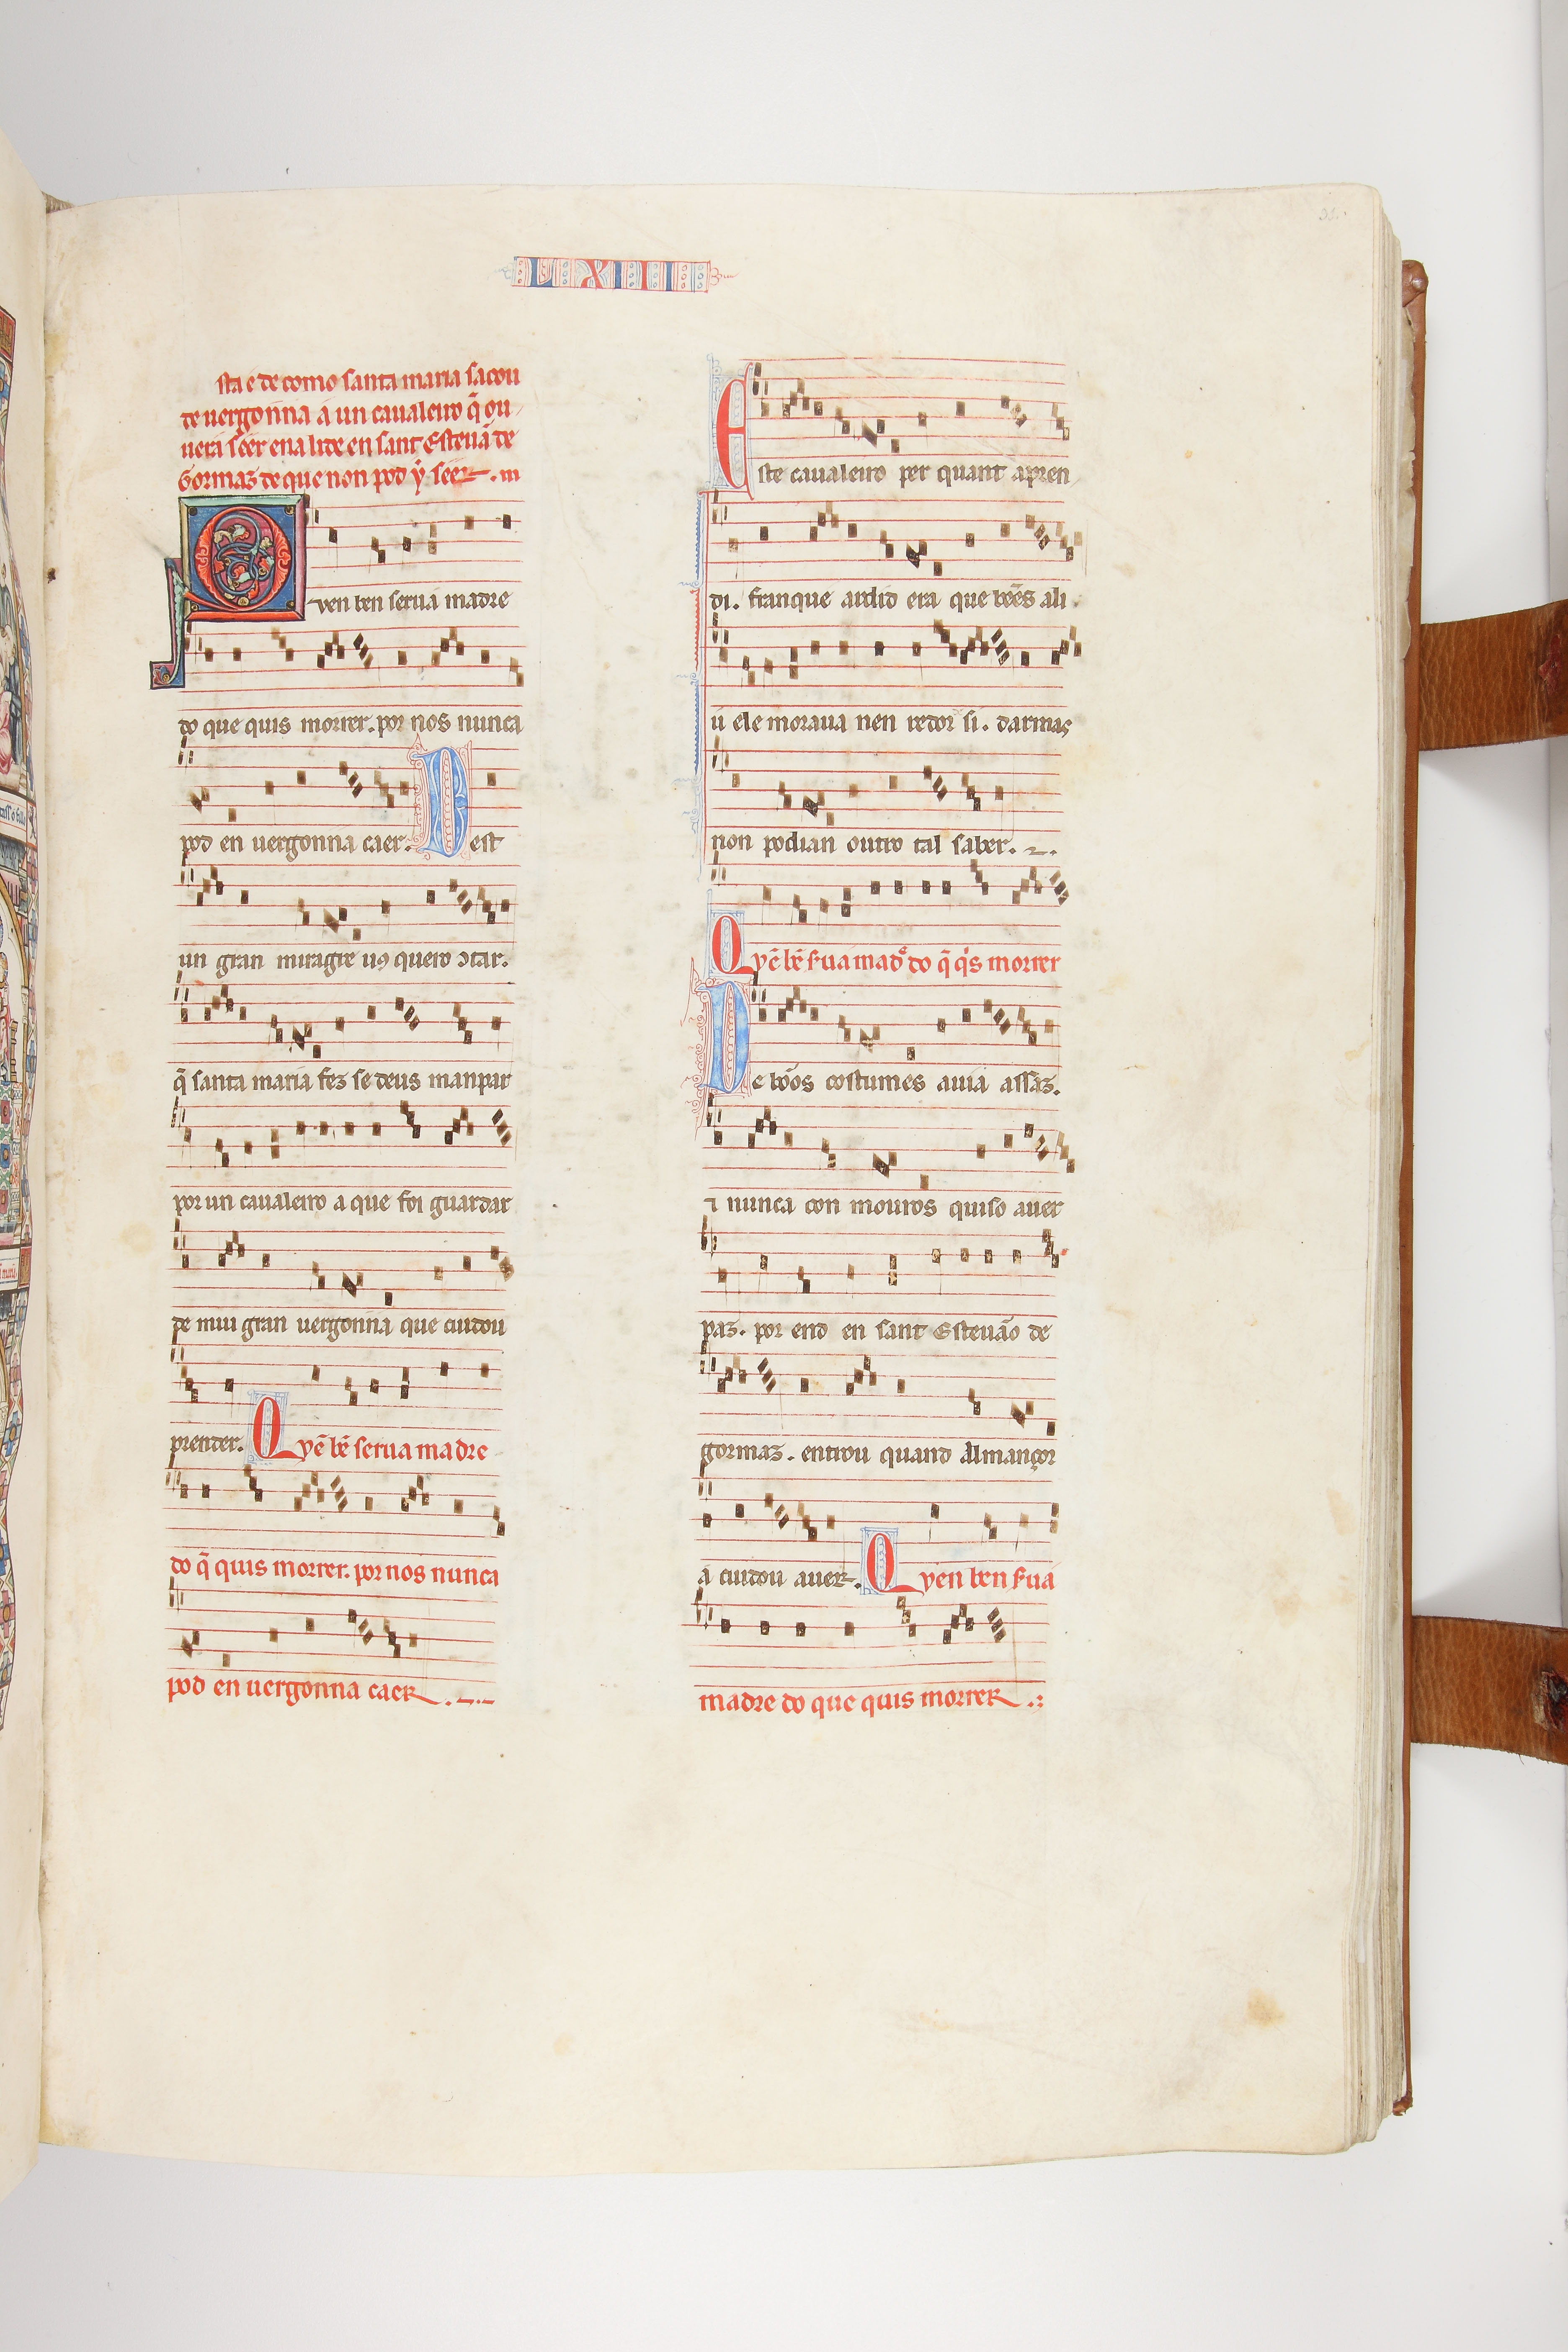 LXIII
sta e de como santa maria sacou
de uergonna a un caualeiro q̃ ou
uera seer ena lide en sant Esteuã de
Gormaz de que non pod ẏ seer. m
Quen ben serua madre
do que quis morrer. por nos nunca
pod en uergonna caer. Dest
un gran miragre uꝯ quero ɔtar.
q̃ santa maria fez se deus manpar
por un caualeiro a que foi guardar
de mui gran uergonna que cuidou
prender. Qyẽ bẽ serua madre
do q̃ quis morrer. por nos nunca
pod en uergonna caer.
Este caualeiro per quant apren
di. franque ardid era que bõẽs ali
u ele moraua nen redor si. darmas
non podian outro tal saber.
Qyẽ bẽ s̃ua madͤ do q̃ qͥs morrer
De bõos costumes auia assaz.
⁊ nunca con mouros quiso auer
paz. por end en sant Esteuão de
gormaz. entrou quand Almançor
a cuidou auer. Qyen ben s̃ua
madre do que quis morrer.